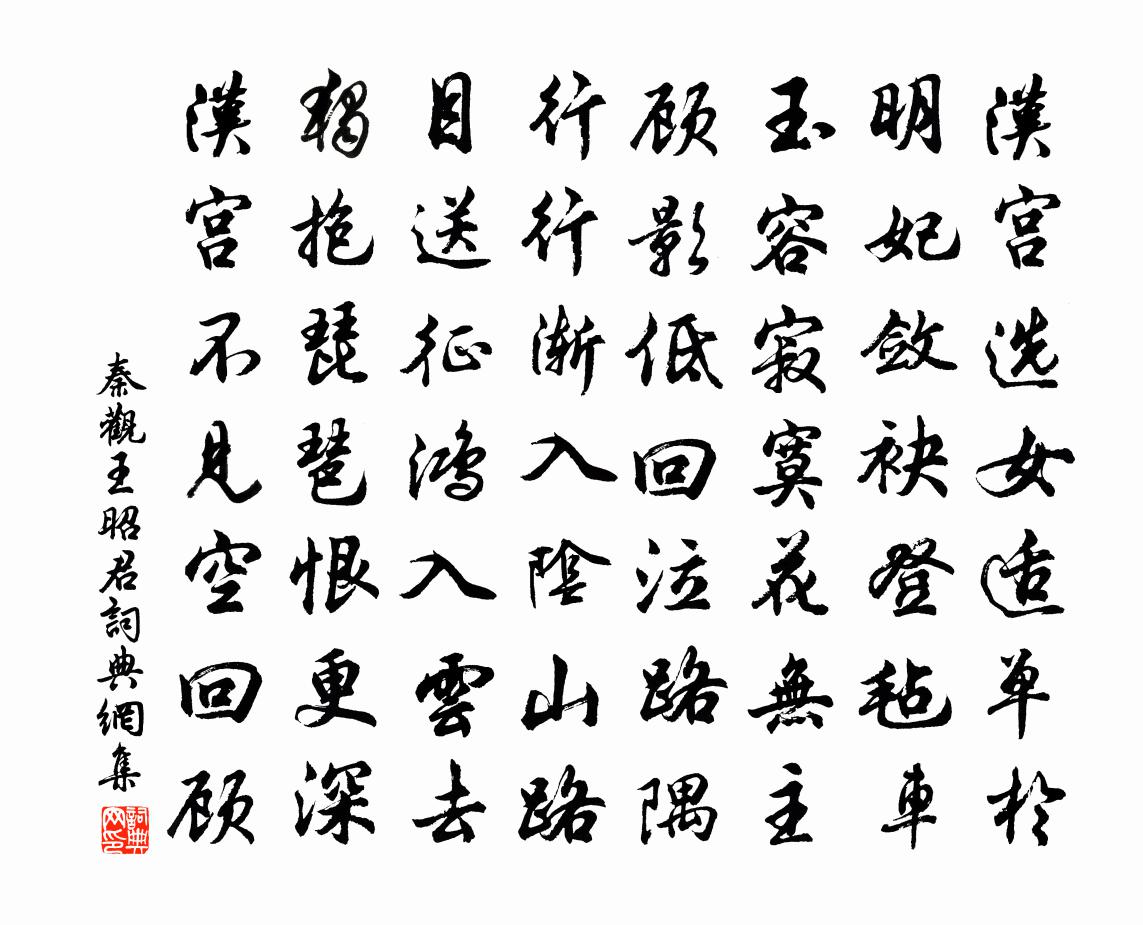 漢宮选女适单於
明妃斂袂登毡車
玉容寂寞花無主
顾影低回泣路隅
行行漸入陰山路
目送征鴻入雲去
獨抱琵琶恨更深
漢宮不見空回顾
秦觀王昭君詞典網集
詞典网印